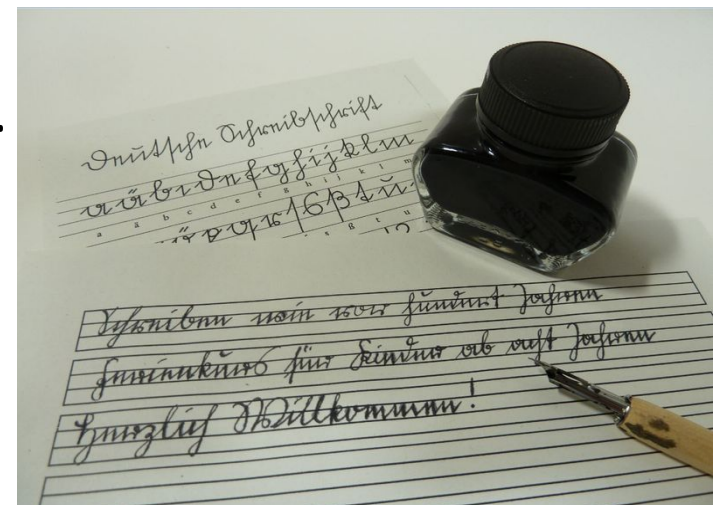 Deutsche Schreibschrift
a ä b c d e f g h i j k l m
a ä b c d e f g h i j k l m
s ß t u
Schreiben wie vor hundert Jahren
Ferienkurs für Kinder ab acht Jahren
Herzlich Willkommen!